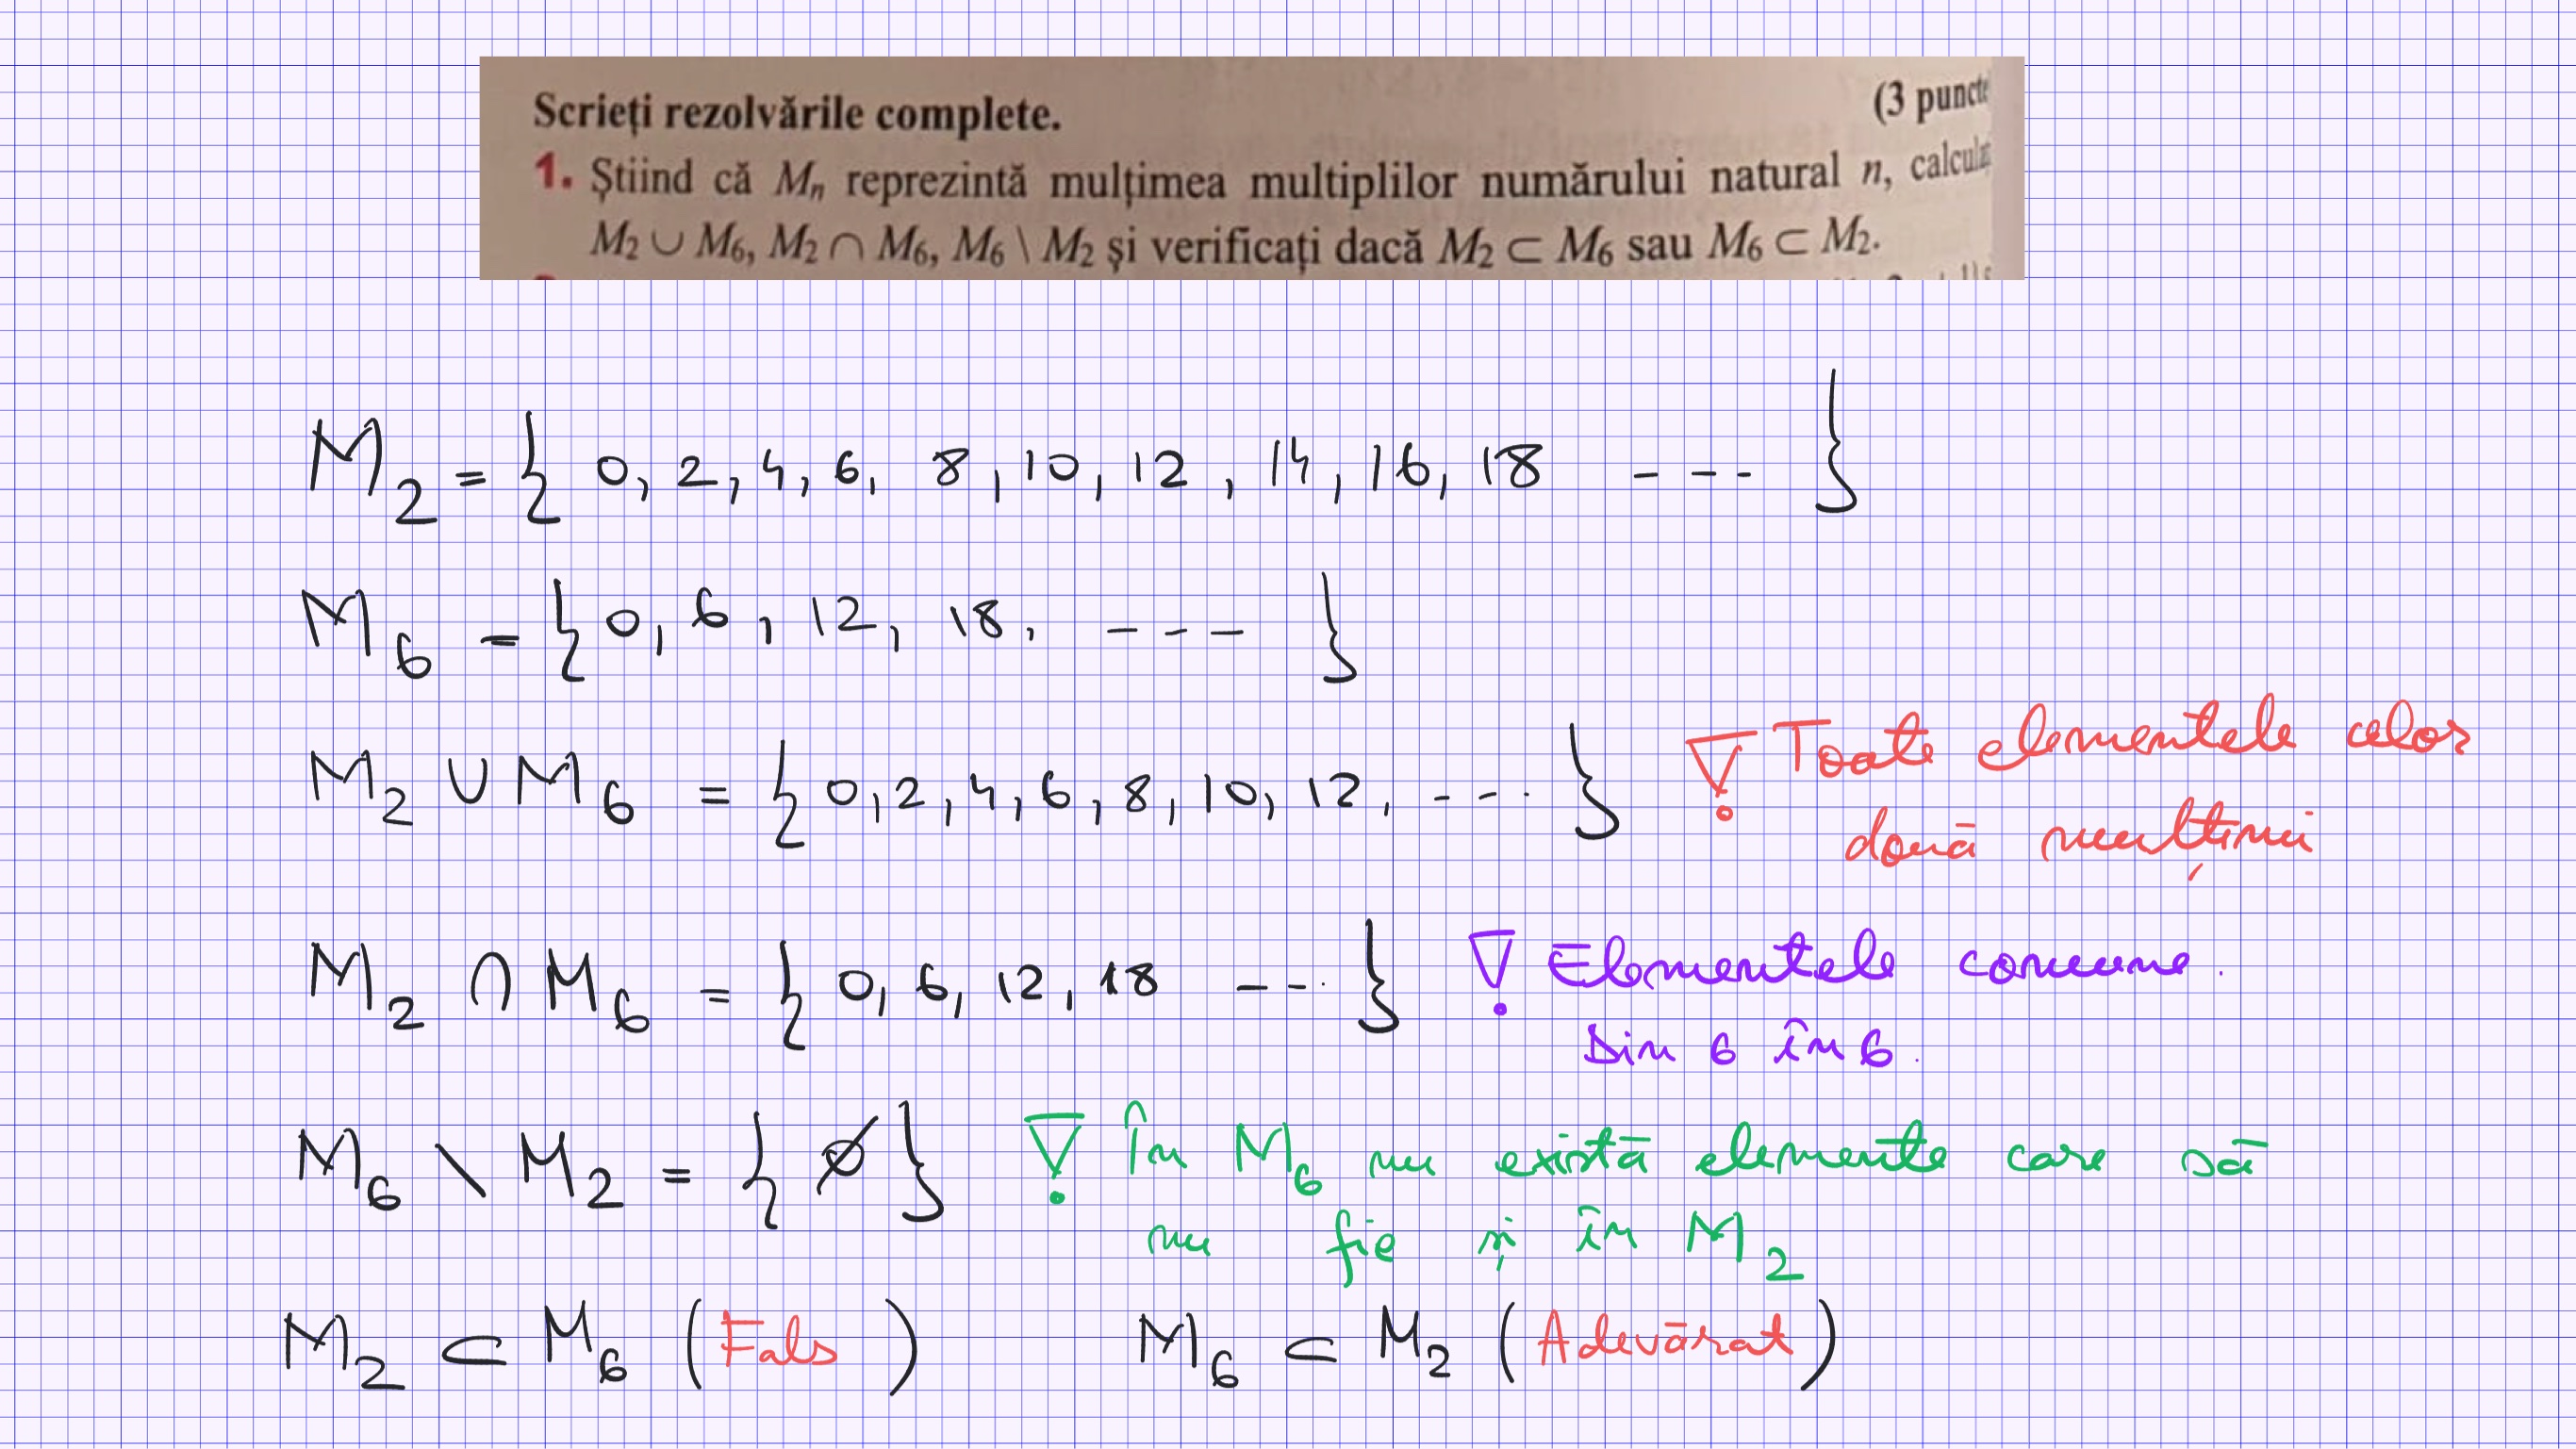 Scrieți rezolvările complete. (3 puncte
1. Știind că Mₙ reprezintă mulțimea multiplilor numărului natural n, calculați
M₂ ∪ M₆, M₂ ∩ M₆, M₆ \ M₂ și verificați dacă M₂ ⊂ M₆ sau M₆ ⊂ M₂.
M₂ = { 0, 2, 4, 6, 8, 10, 12, 14, 16, 18 --- }
M₆ = { 0, 6, 12, 18, --- }
M₂ ∪ M₆ = { 0, 2, 4, 6, 8, 10, 12, --- } Toate elementele celor
două mulțimi
M₂ ∩ M₆ = { 0, 6, 12, 18 --- } Elementele comune.
Din 6 în 6.
M₆ \ M₂ = { ∅ } În M₆ nu există elemente care să
nu fie și în M₂
M₂ ⊂ M₆ (Fals) M₆ ⊂ M₂ (Adevărat)